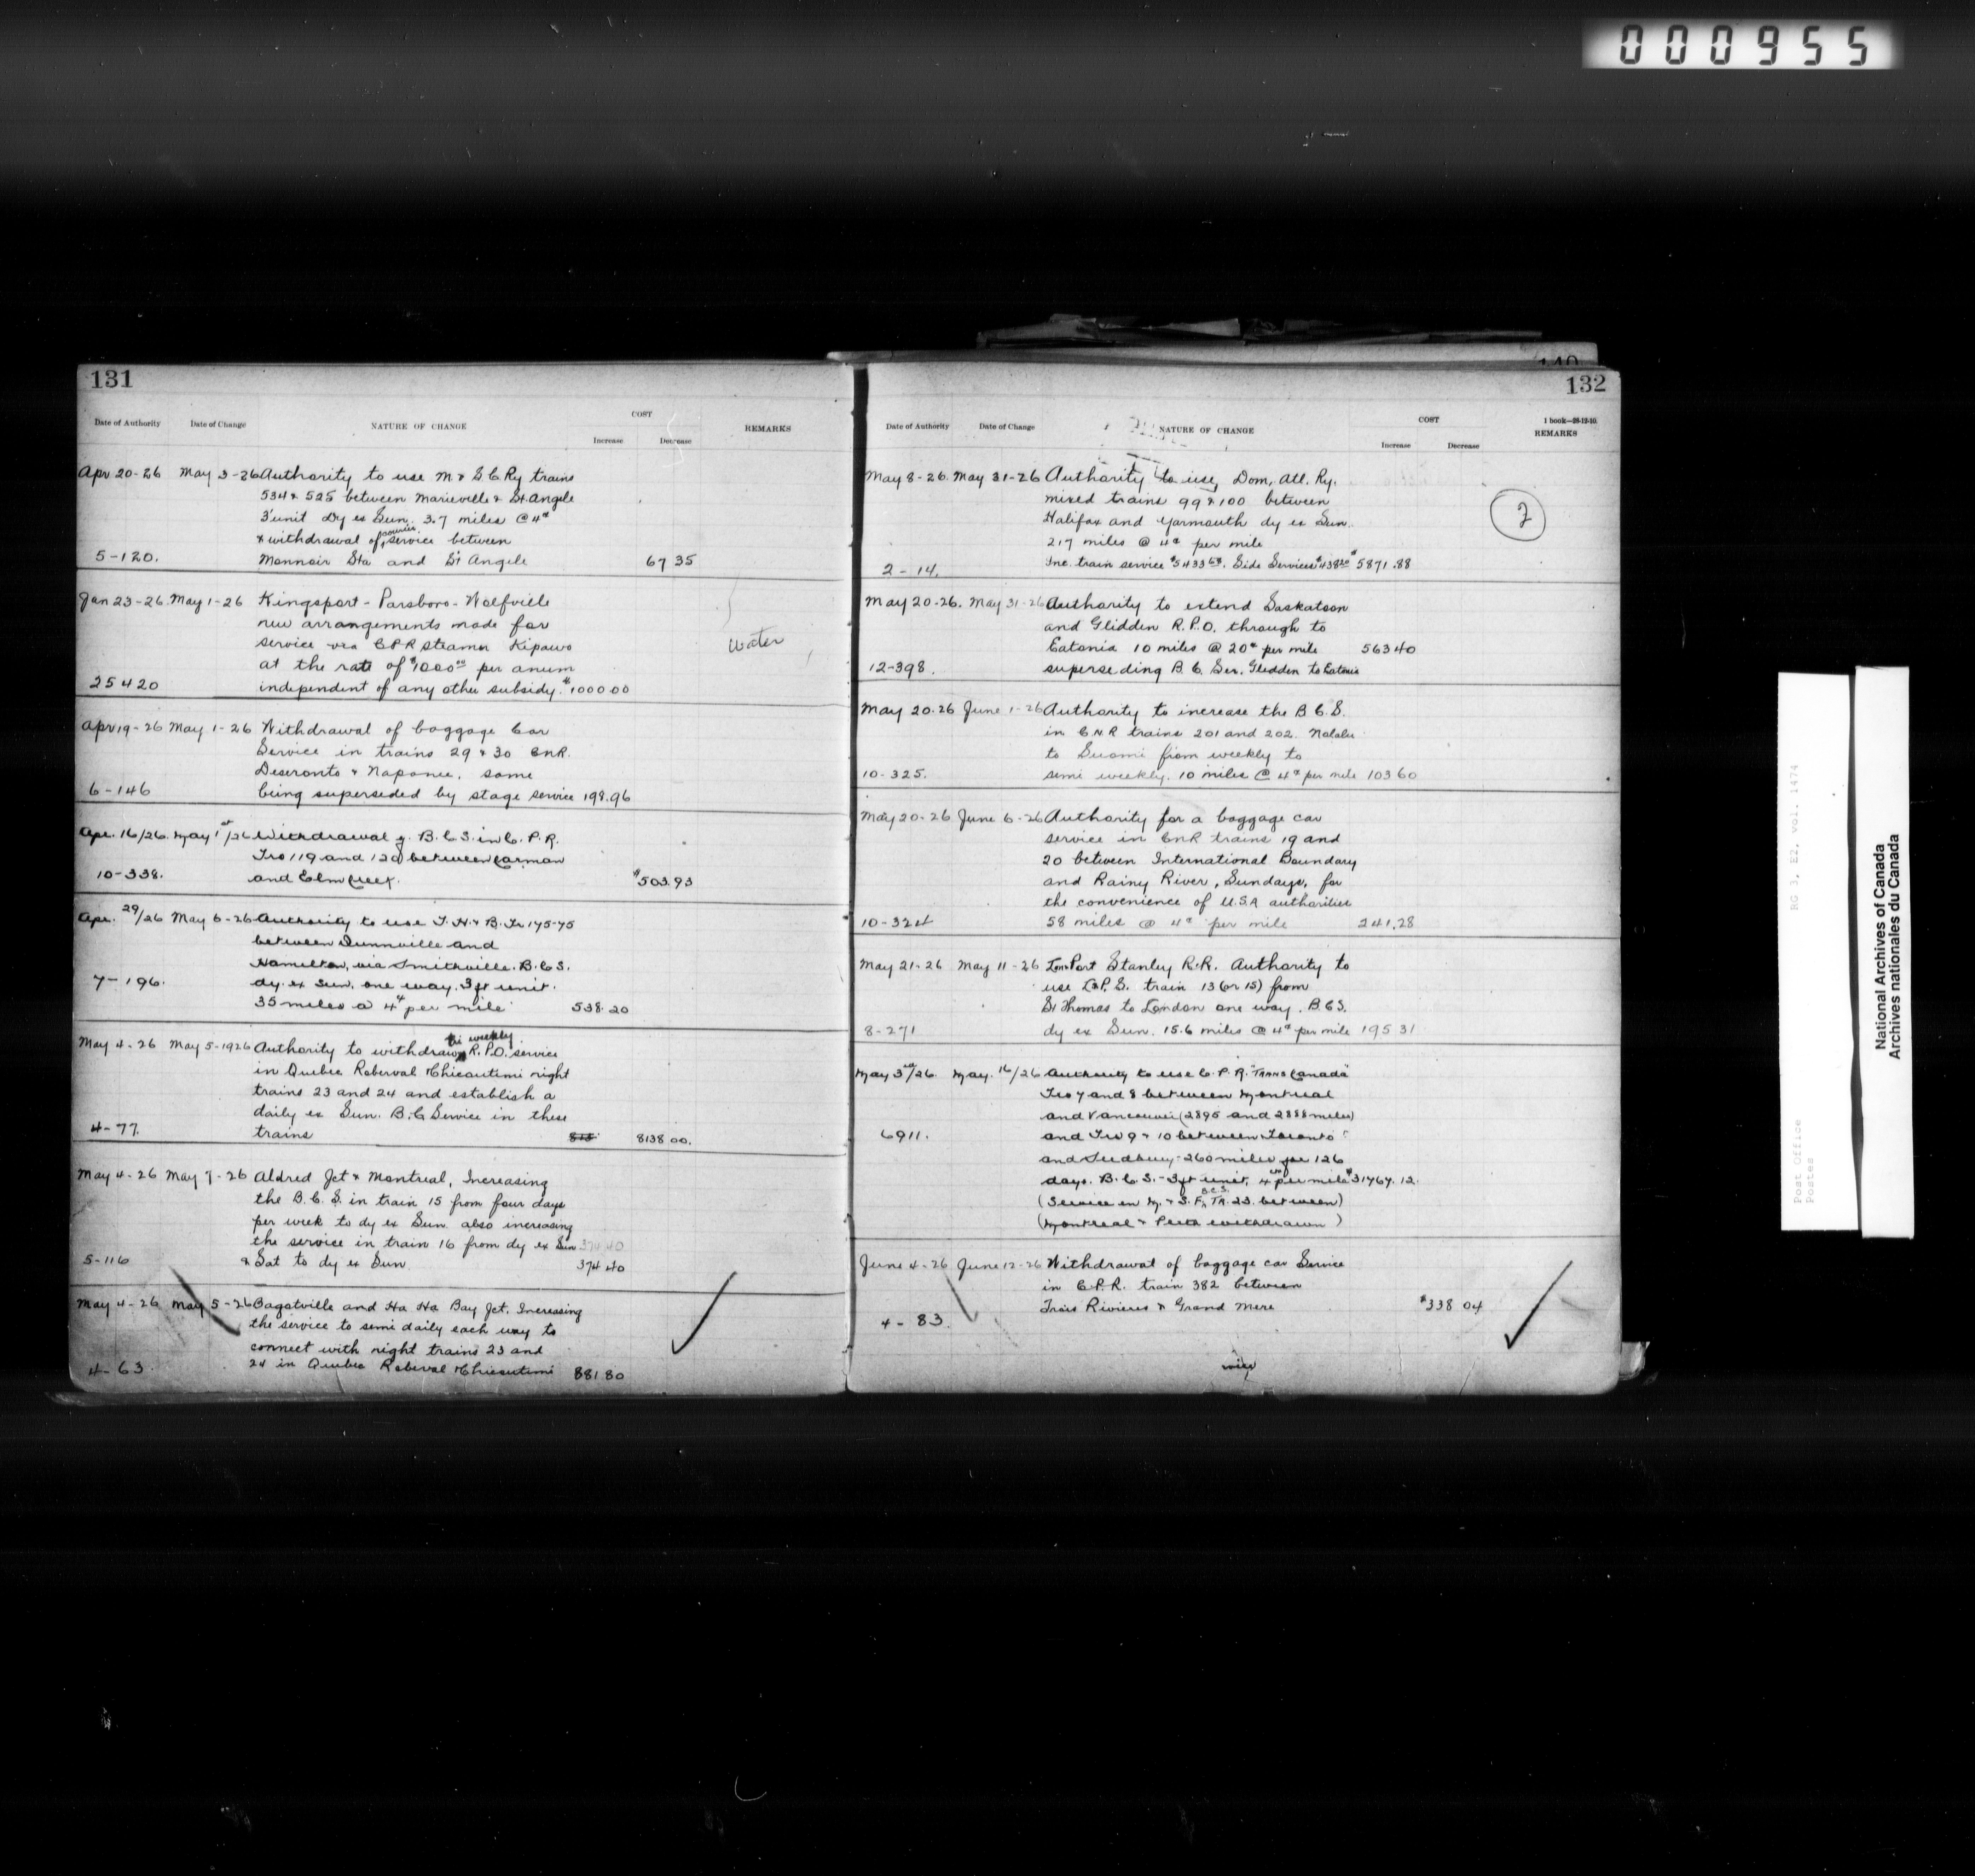 000955
131
Date of Authority Date of Change NATURE OF CHANGE COST Increase Decrease REMARKS
Apr 20-26 May 3-26 Authority to use M & S.C. Ry trains
534 & 525 between Marieville & St. Angele
3' unit Dy ex Sun. 3.7 miles @ 4¢
& withdrawal of courier service between
5-120. Monnoir Sta and St Angele 67 35
Jan 23-26 May 1-26 Kingsport - Parsboro - Wolfville
new arrangements made for
service via CPR steamer Kipawo
Water
at the rate of $1000.00 per anum
25420 independent of any other subsidy. $1000 00
Apr 19-26 May 1-26 Withdrawal of baggage Car
Service in trains 29 & 30 CNR.
Deseronto & Napanee, same
6-146 being superseded by stage service 198.96
Apr. 16/26. May 1st/26 Withdrawal of B.C.S. in C.P.R.
Trs 119 and 120 between Carman
10-338. and Elm Creek. $503.93
Apr. 29/26 May 6-26 Authority to use T.H.& B. Tr 175-75
between Dunnville and
Hamilton, via Smithville. B.C.S.
7-196. dy. ex Sun. one way. 3 ft unit.
35 miles @ 4¢ per mile 538.20
May 4-26 May 5-1926 Authority to withdraw tri weekly R.P.O. service
in Quebec Roberval Chicoutimi night
trains 23 and 24 and establish a
daily ex Sun. B.C Service in these
4-77. trains 813 8138 00.
May 4-26 May 7-26 Aldred Jct & Montreal, Increasing
the B.C.S. in train 15 from four days
per week to dy ex Sun. also increasing
the service in train 16 from dy ex Sun 374 40
5-116 & Sat to dy ex Sun 374 40
May 4-26 May 5-26 Bagotville and Ha Ha Bay Jct. Increasing
the service to semi daily each way to
connect with night trains 23 and
4-63. 24 in Quebec Roberval Chicoutimi 881.80
140
132
Date of Authority Date of Change NATURE OF CHANGE COST Increase Decrease 1 book—28-12-10. REMARKS
May 8-26. May 31-26 Authority to use, Dom. Atl. Ry.
mixed trains 99 & 100 between
2
Halifax and Yarmouth dy ex Sun.
217 miles @ 4¢ per mile
2-14. Inc. train service $5433.68. Side Services $438.20 $5871.88
May 20-26. May 31-26 Authority to extend Saskatoon
and Glidden R.P.O. through to
Eatonia 10 miles @ 20¢ per mile 563 40
12-398. superseding B.C. Ser. Glidden to Eatonia
May 20.26 June 1-26 Authority to increase the B.C.S.
in C.N.R trains 201 and 202. Nolalu
to Suomi from weekly to
10-325. semi weekly. 10 miles @ 4¢ per mile 103 60
May 20-26 June 6-26 Authority for a baggage car
service in CNR trains 19 and
20 between International Boundary
and Rainy River, Sundays, for
the convenience of U.S.A authorities
10-324 58 miles @ 4¢ per mile 241.28
May 21-26 May 11-26 Lon & Port Stanley R.R. Authority to
use L&P.S. train 13 (or 15) from
St Thomas to London one way. B.C.S.
8-271 dy ex Sun. 15.6 miles @ 4¢ per mile 195 31
May 3rd/26. May. 16/26 Authority to use C.P.R. "Trans Canada"
Trs 7 and 8 between Montreal
and Vancouver (2895 and 2888 miles)
6911. and Trs 9 & 10 between Toronto
and Sudbury - 260 miles for 126
days. B.C.S. - 3 ft unit, 4 cts per mile $31767.12.
(Service in M. & S.F. B.C.S. Tr. 23. between)
(Montreal & Perth withdrawn)
June 4-26 June 12-26 Withdrawal of baggage car Service
in C.P.R. train 382 between
Trois Rivieres & Grand Mere $338 04
4-83.
RG 3, E2, vol. 1474
Post Office
Postes
National Archives of Canada
Archives nationales du Canada